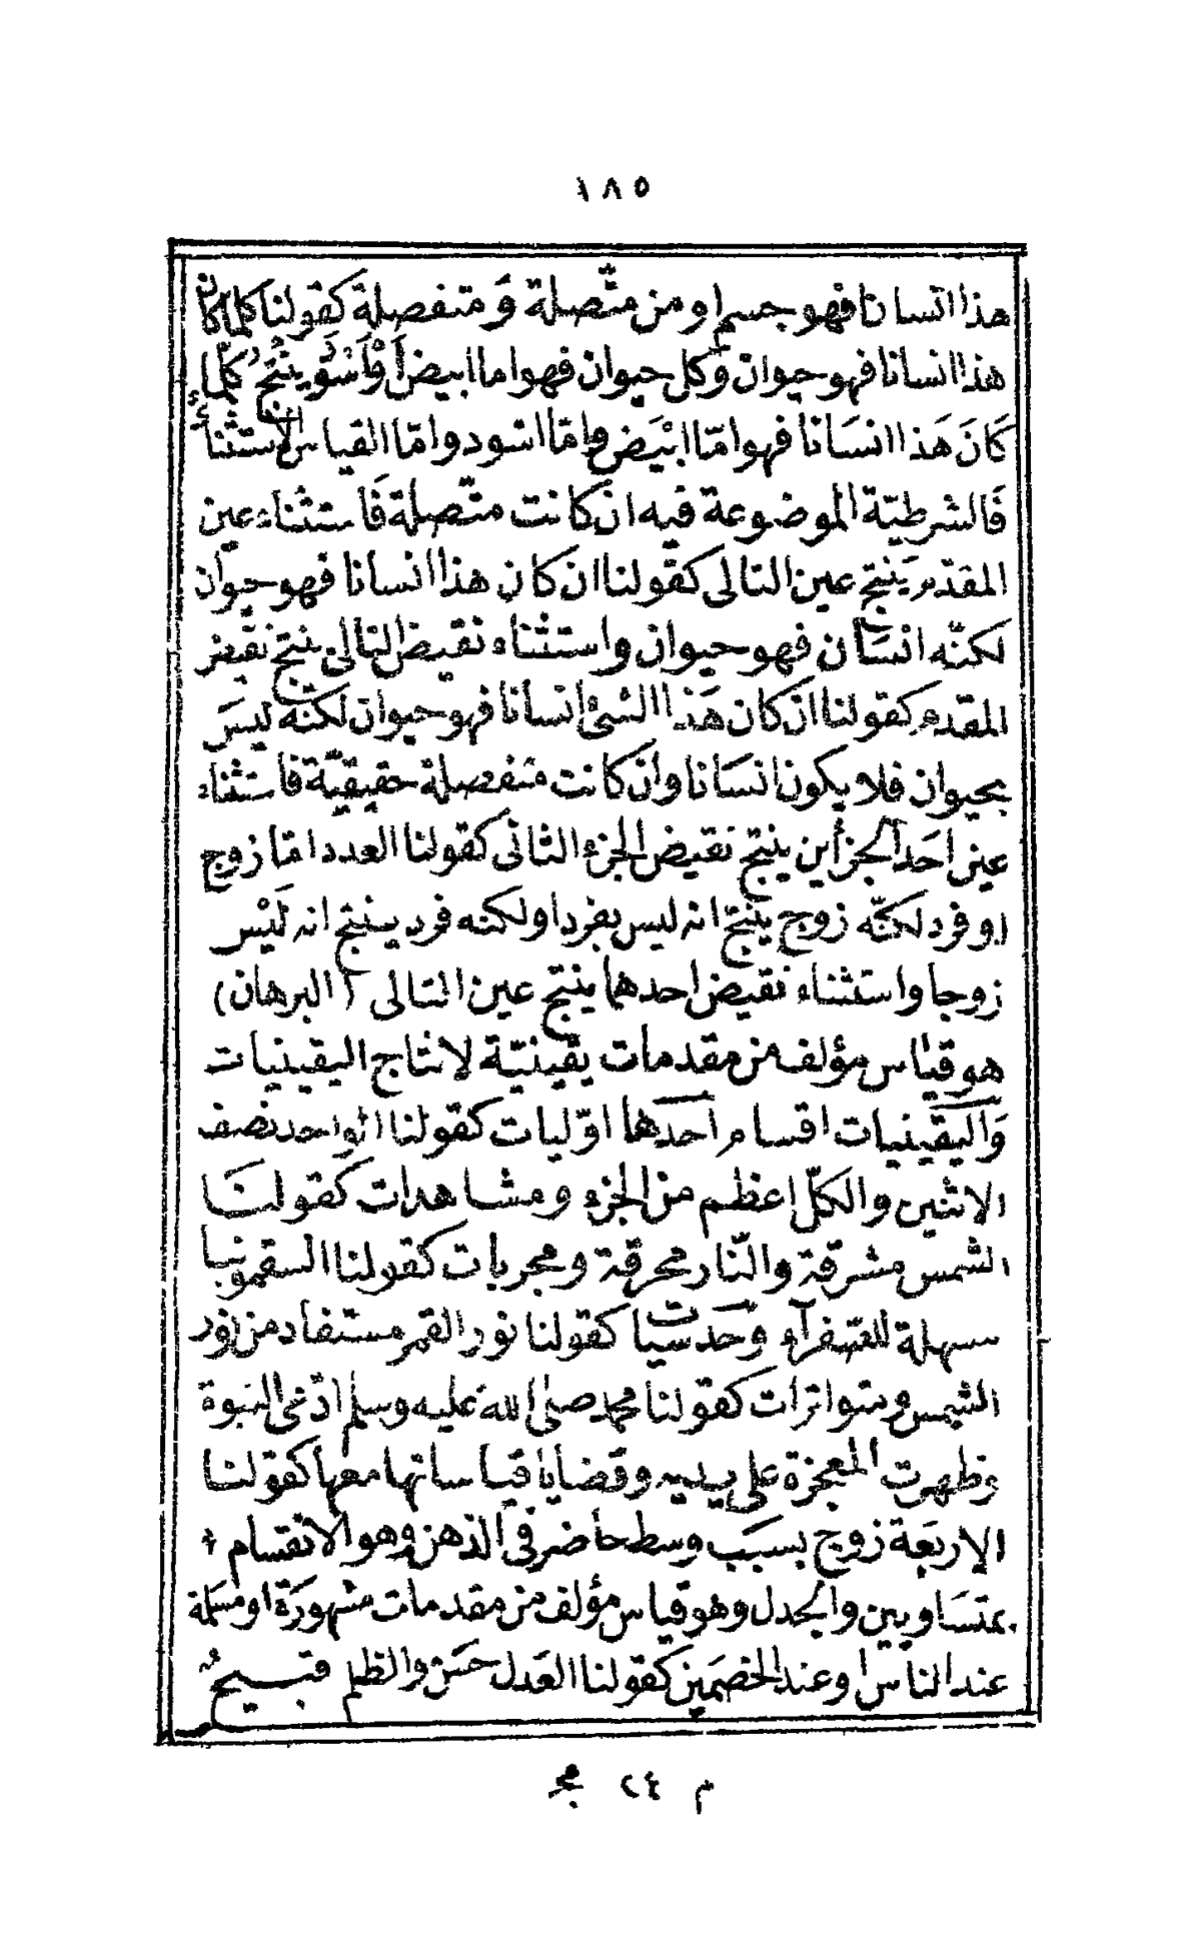 ١٨٥
هذا انسانا فهو جسم او من متّصلة وَ منفصلة كقولنا كلما كان
هذا انسانا فهو حيوان وَكل حيوان فهو اما ابيض أَوْ أَسْوَدُ ينتجُ كلّما
كَانَ هَذا انسَانا فهو امّا ابْيَض وامّا اسود وامّا القياس الاستثنائىّ
فَالشرطيّة الموضوعة فيه ان كانت متّصلة فَاستثناء عين
المقدّم يَنتج عين التالى كقولنا ان كان هذا انسانا فهو حيوان
لكنّه انسَان فهو حيوان واستثناء نقيض التالى ينتج نقيض
المقدم كقولنا ان كان هَذا الشئ انسانا فهو حيوان لكنّه ليسَ
بحيوان فلا يكون انسَانا وان كانت منفصلة حقيقيّة فاستثناء
عين احَد الجزأين ينتج نقيض الجزء الثانى كقولنا العدد امّا زوج
او فرد لكنّه زوج يَنتج انه ليس بفرد او لكنه فرد ينتج انه لَيْس
زوجا واستثناء نقيض احدهما ينتج عين التالى (البرهان)
هو قياس مؤلف من مقدمات يقينيّة لانتاج اليقينيات
وَاليَقينيات اقسام احَدهَا اوّليات كقولنا الواحد نصف
الاثنين والكلّ اعظم من الجزء ومشاهدات كقولنَا
الشمس مشرقة والنّار محرقة ومجربات كقولنا السقمونيا
مسهلة للصّفرآء وَحَدسيّات كقولنا نور القمر مستفاد من نور
الشمس ومتواترات كقولنا محمد صلى الله عليه وسلم ادّعى النبوة
وظهرت المعجزة على يديه وقضايا قياساتها معها كقولنا
الاربَعة زوج بسبَب وسط حاضر فى الذهن وهو الانقسام
بمتسَاويين والجدل وهو قياس مؤلف من مقدمات مشهورَة او مسَلمة
عند الناس او عند الخصمَين كقولنا العَدل حَسَن والظلم قبيحٌ
م ٢٤ مج